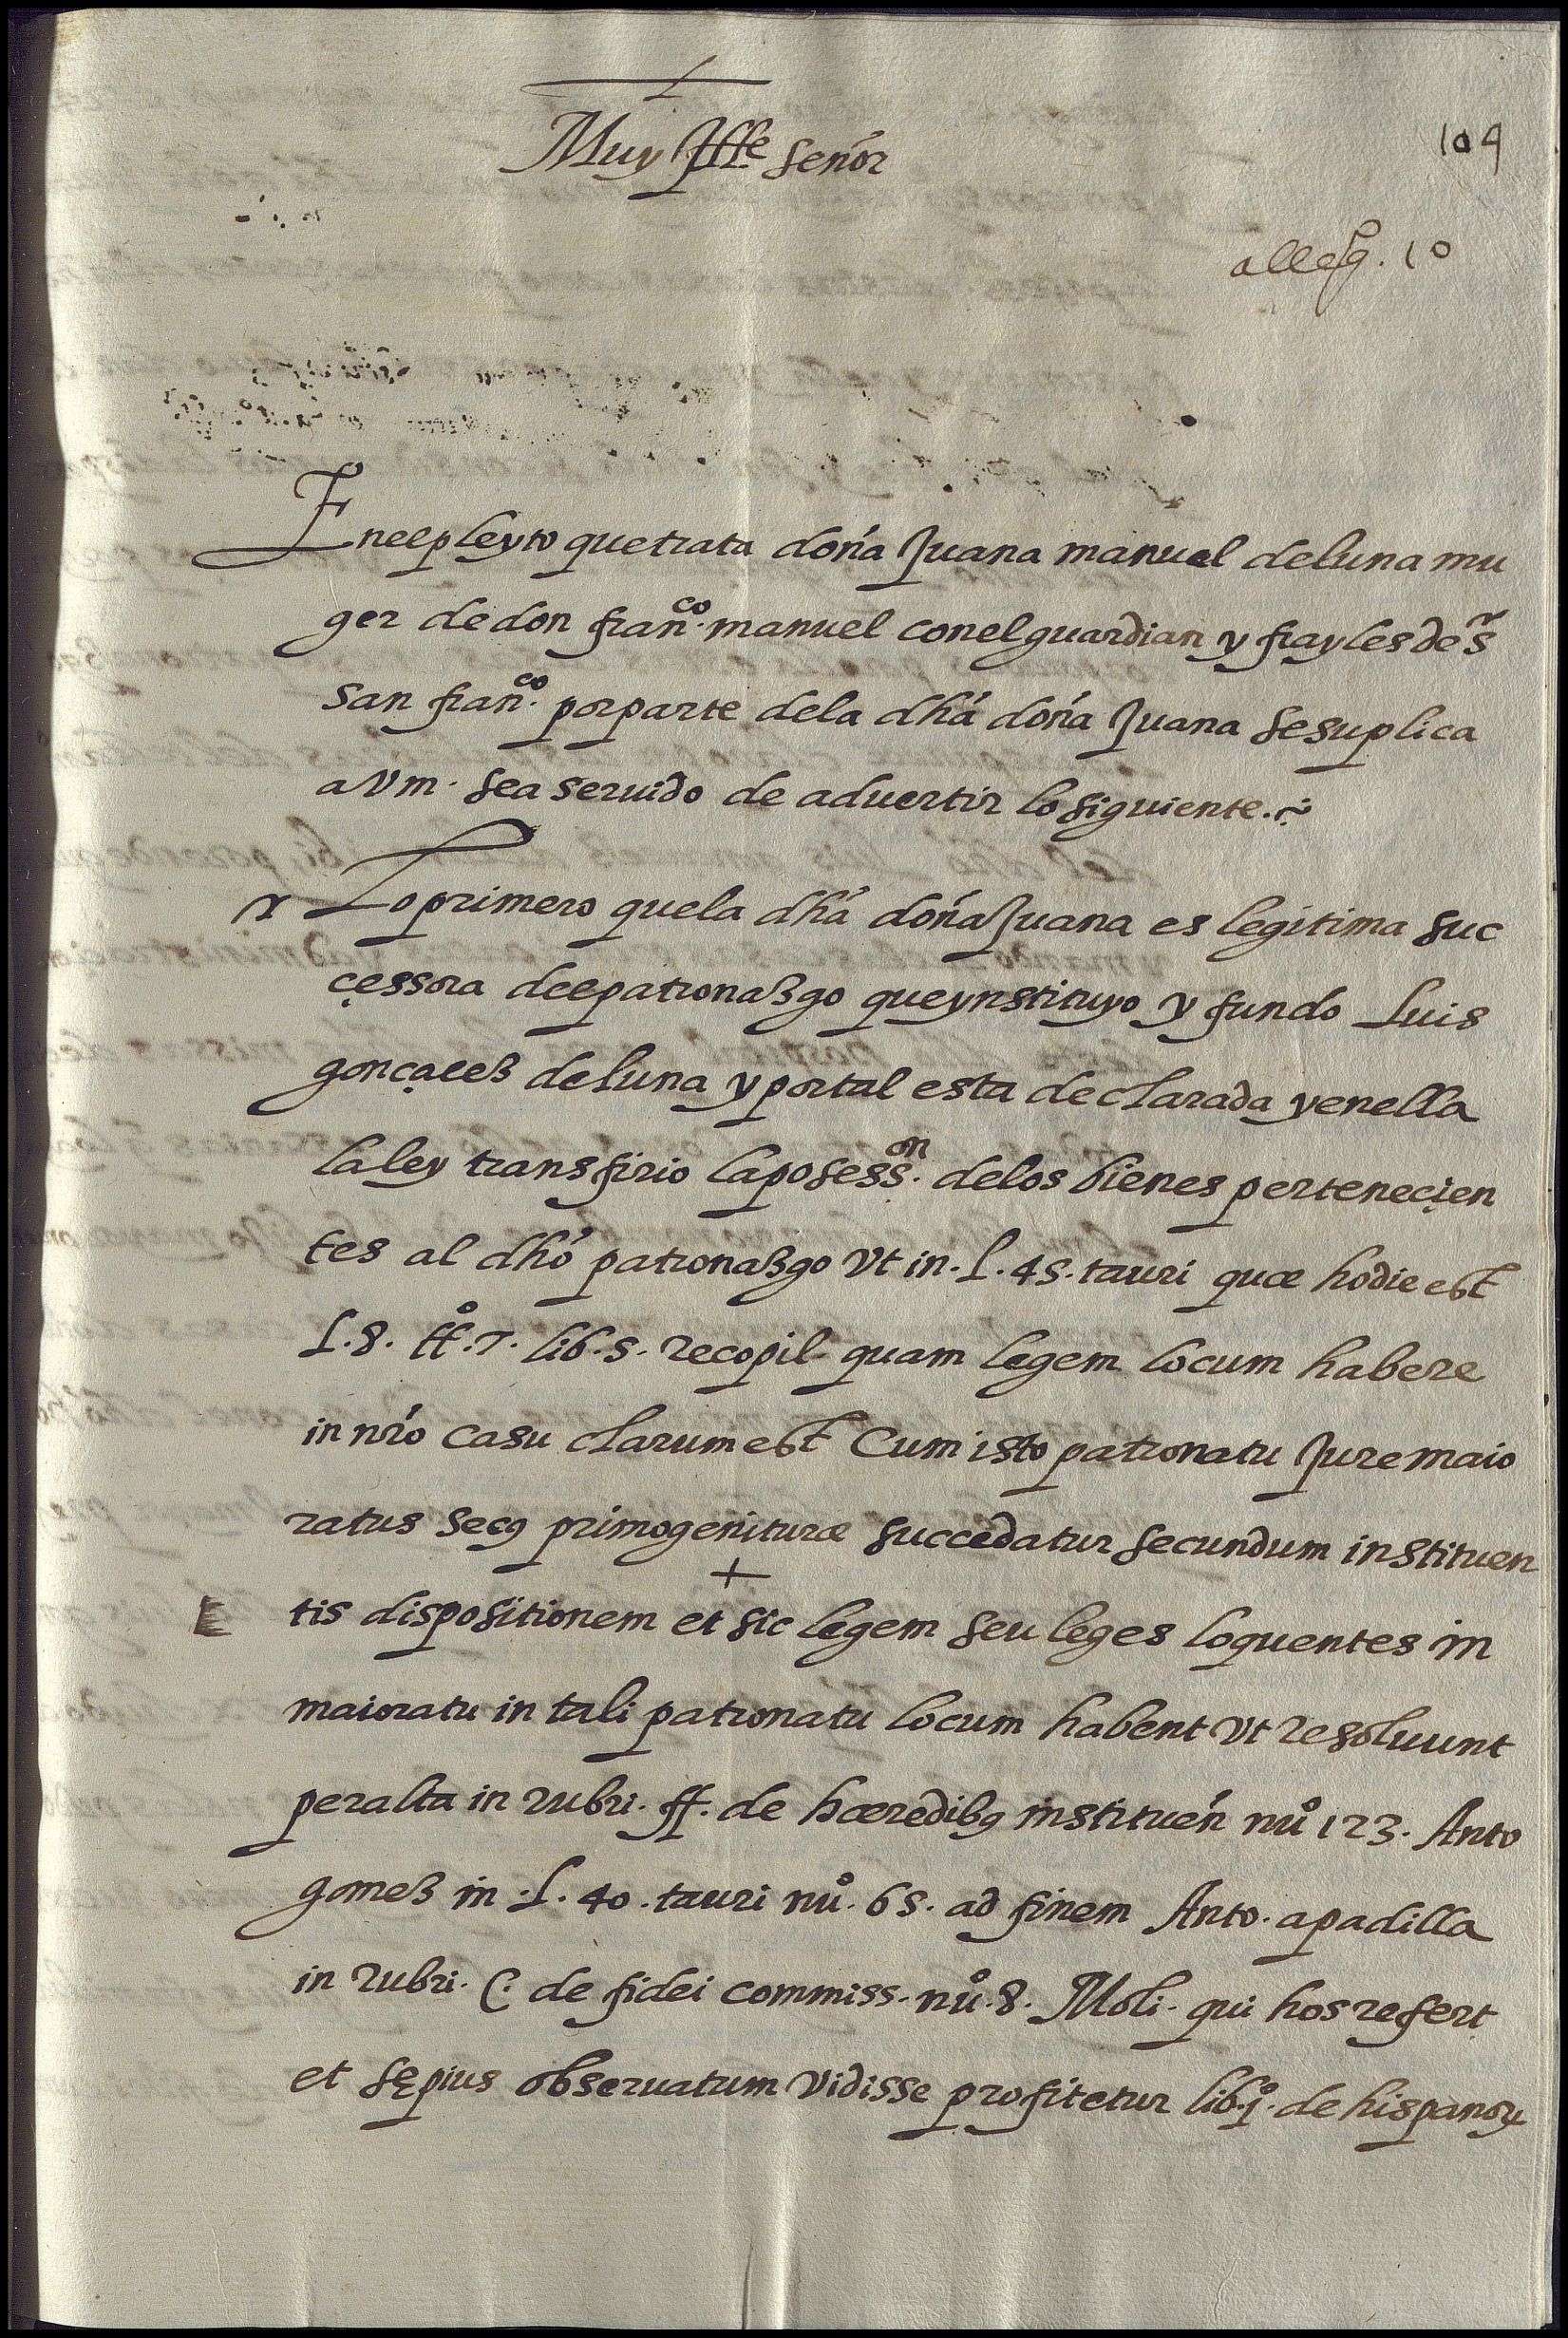 Muy Ille señor
109
alleg. 10
En el pleyto que trata doña Juana manuel de luna mu
ger de don fran.co manuel con el guardian y frayles de s
san fran.co por parte de la dha doña Juana se suplica
a Vm. sea seruido de aduertir lo siguiente.
Lo primero que la dha doña Juana es legitima suc
cessora del patronazgo que ynstituyo y fundo Luis
gonçalez de luna y por tal esta declarada y en ella
la ley transfirio la posess.on de los bienes perteneçien
tes al dho patronazgo Vt in. l. 45. tauri quæ hodie est
l. 8. tt.o 7. lib. 5. recopil. quam legem locum habere
in nro casu clarum est Cum isto patronatu Jure maio
ratus seu primogenituræ succedatur secundum instituen
+
tis dispositionem et sic legem seu leges loquentes in
maioratu in tali patronatu locum habent Vt resoluunt
peralta in rubri. ff. de hæredib9 instituen nu.o 123. Anto
gomez in. l. 40. tauri nu.o 65. ad finem Anto. a padilla
in rubri. C. de fidei commiss. nu.o 8. Moli. qui hos refert
et sępius obseruatum Vidisse profitetur lib. j.o de hispanoꝝ